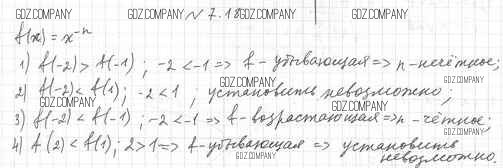 GDZ.COMPANY GDZ.COMPANY № 7.18 GDZ.COMPANY GDZ.COMPANY
f(x) = x⁻ⁿ
1) f(-2) > f(-1) ; -2 < -1 => f - убывающая => n - нечётное;
GDZ.COMPANY GDZ.COMPANY
2) f(-2) < f(1) ; -2 < 1 , установить невозможно;
GDZ.COMPANY GDZ.COMPANY
3) f(-2) < f(-1) ; -2 < -1 => f - возрастающая => n - чётное;
4) f(2) < f(1) ; 2 > 1 => f - убывающая => установить
невозможно.
GDZ.COMPANY GDZ.COMPANY